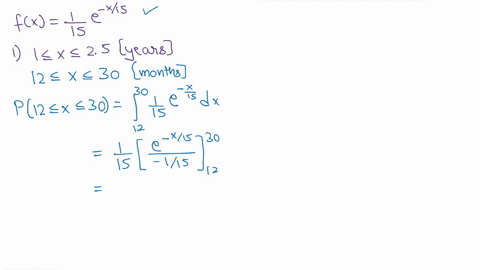 f(x) = 1/15 e^(-x/15) ✓
1) 1 ≤ x ≤ 2.5 [years]
12 ≤ x ≤ 30 [months]
P(12 ≤ x ≤ 30) = ∫_12^30 1/15 e^(-x/15) dx
= 1/15 [e^(-x/15) / -1/15]_12^30
=